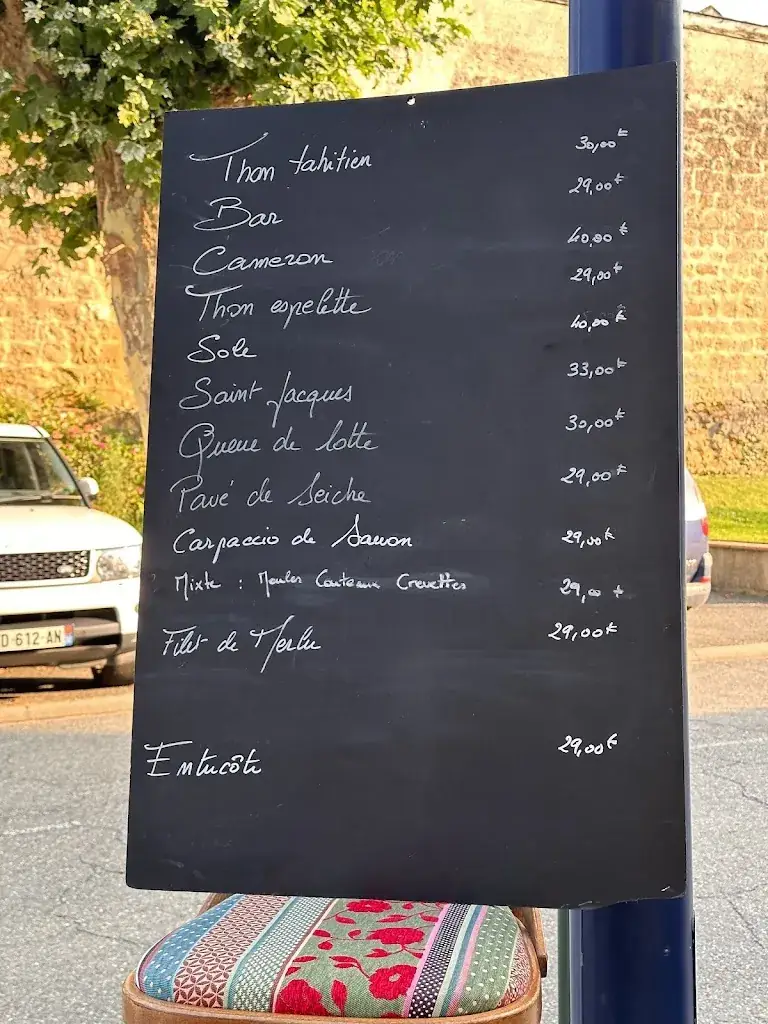 Thon tahitien 30,00€
Bar 29,00€
Cameron 40,00€
Thon espelette 29,00€
Sole 40,00€
Saint Jacques 33,00€
Queue de lotte 30,00€
Pavé de Seiche 29,00€
Carpaccio de Saumon 29,00€
Mixte : Moules Couteaux Crevettes 29,00 €
Filet de Merlu 29,00€
Entrecôte 29,00€
D 612-AN